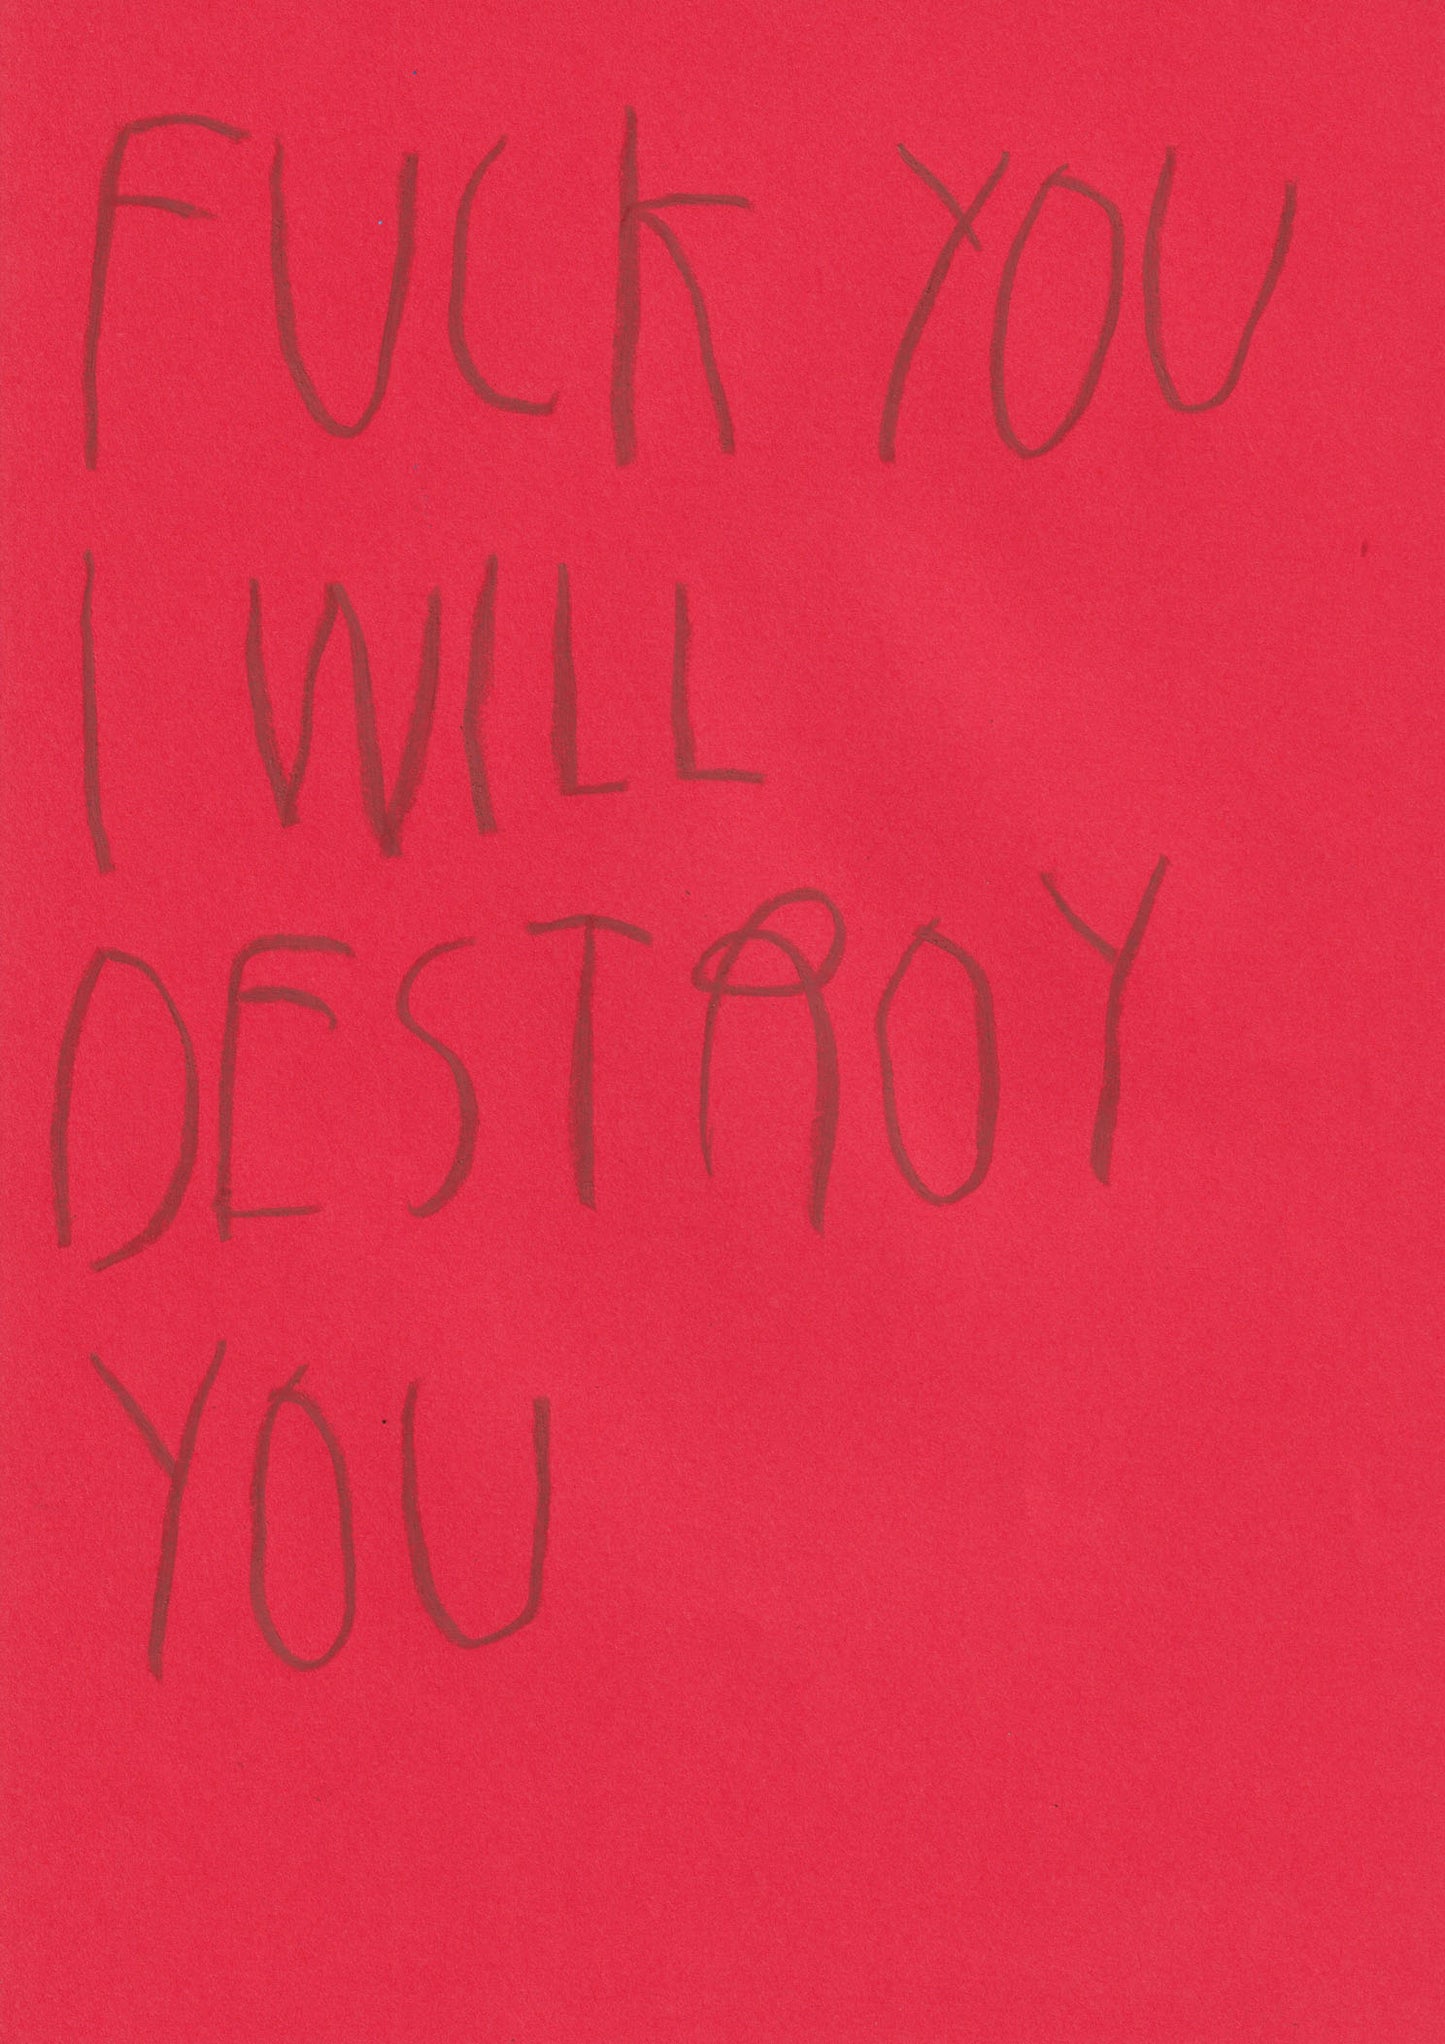 FUCK YOU
I WILL
DESTROY
YOU